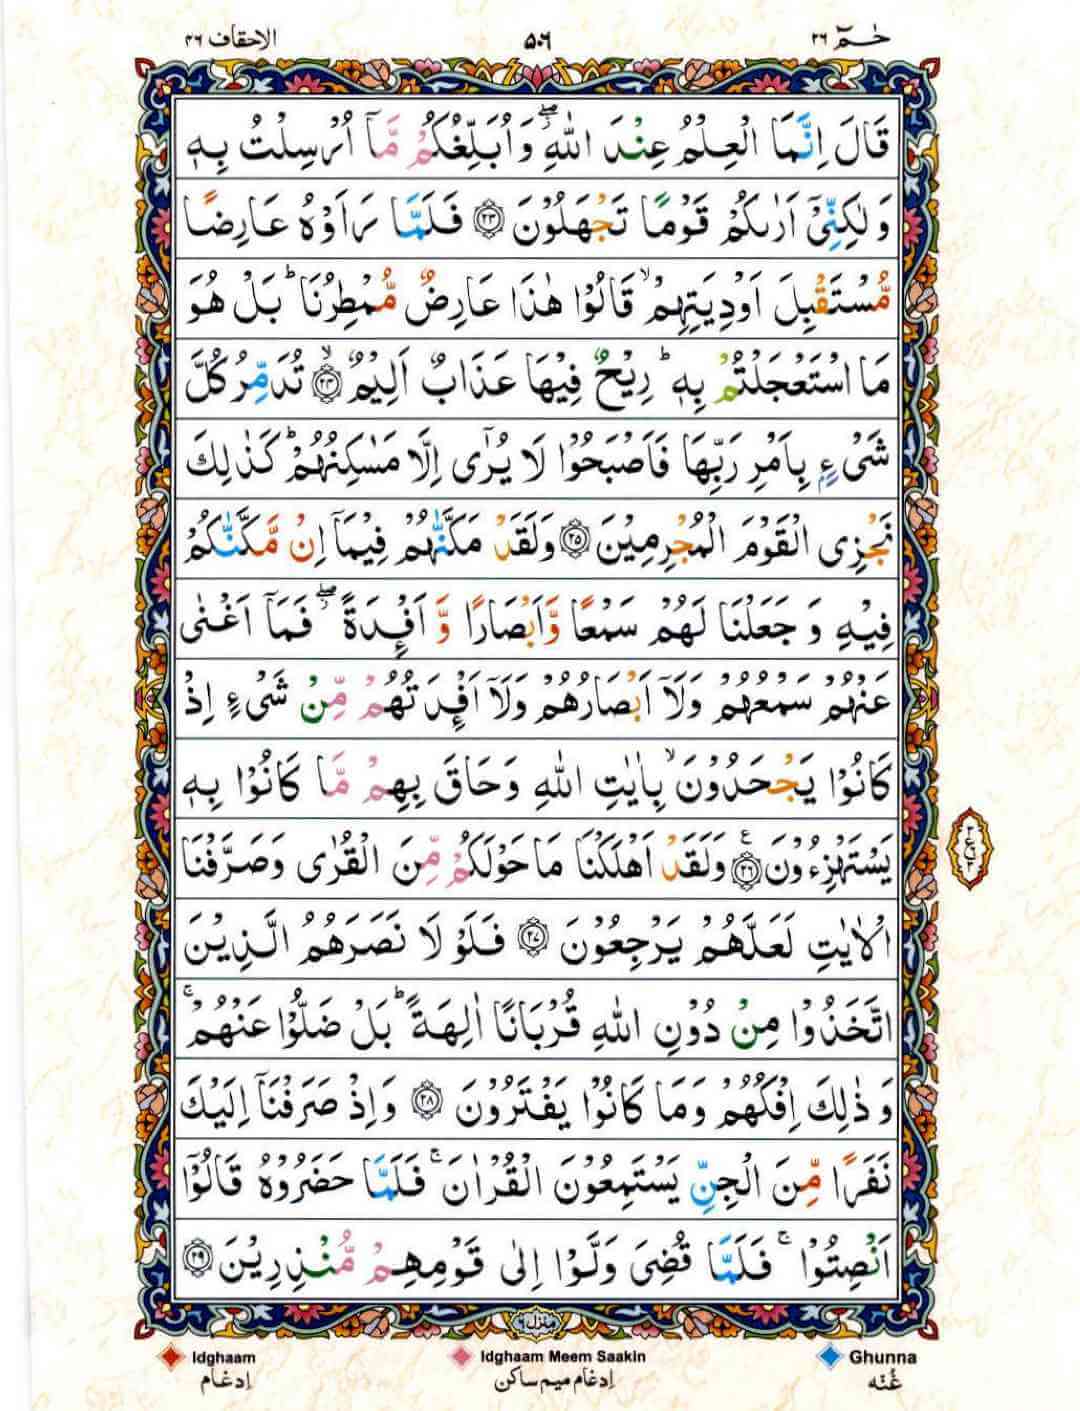 حٰمٓ ۲۶
۵۰۶
الاحقاف ۴۶
قَالَ اِنَّمَا الْعِلْمُ عِنْدَ اللّٰهِ ۖ٘ وَ اُبَلِّغُكُمْ مَّاۤ اُرْسِلْتُ بِهٖ
وَ لٰكِنِّیْۤ اَرٰىكُمْ قَوْمًا تَجْهَلُوْنَ ﴿۲۳﴾ فَلَمَّا رَاَوْهُ عَارِضًا
مُّسْتَقْبِلَ اَوْدِیَتِهِمْ ۙ قَالُوْا هٰذَا عَارِضٌ مُّمْطِرُنَا ؕ بَلْ هُوَ
مَا اسْتَعْجَلْتُمْ بِهٖ ؕ رِیْحٌ فِیْهَا عَذَابٌ اَلِیْمٌ ﴿۲۴﴾ ۙ تُدَمِّرُ كُلَّ
شَیْءٍۭ بِاَمْرِ رَبِّهَا فَاَصْبَحُوْا لَا یُرٰۤی اِلَّا مَسٰكِنُهُمْ ؕ كَذٰلِكَ
نَجْزِی الْقَوْمَ الْمُجْرِمِیْنَ ﴿۲۵﴾ وَلَقَدْ مَكَّنّٰهُمْ فِیْمَاۤ اِنْ مَّكَّنّٰكُمْ
فِیْهِ وَ جَعَلْنَا لَهُمْ سَمْعًا وَّ اَبْصَارًا وَّ اَفْـِٕدَةً ۖ٘ فَمَاۤ اَغْنٰی
عَنْهُمْ سَمْعُهُمْ وَلَاۤ اَبْصَارُهُمْ وَلَاۤ اَفْـِٕدَتُهُمْ مِّنْ شَیْءٍ اِذْ
كَانُوْا یَجْحَدُوْنَ ۙ بِاٰیٰتِ اللّٰهِ وَحَاقَ بِهِمْ مَّا كَانُوْا بِهٖ
یَسْتَهْزِءُوْنَ ﴿۲۶﴾ ع وَلَقَدْ اَهْلَكْنَا مَا حَوْلَكُمْ مِّنَ الْقُرٰی وَصَرَّفْنَا
الْاٰیٰتِ لَعَلَّهُمْ یَرْجِعُوْنَ ﴿۲۷﴾ فَلَوْ لَا نَصَرَهُمُ الَّذِیْنَ
اتَّخَذُوْا مِنْ دُوْنِ اللّٰهِ قُرْبَانًا اٰلِهَةً ؕ بَلْ ضَلُّوْا عَنْهُمْ ۚ
وَ ذٰلِكَ اِفْكُهُمْ وَمَا كَانُوْا یَفْتَرُوْنَ ﴿۲۸﴾ وَاِذْ صَرَفْنَاۤ اِلَیْكَ
نَفَرًا مِّنَ الْجِنِّ یَسْتَمِعُوْنَ الْقُرْاٰنَ ۚ فَلَمَّا حَضَرُوْهُ قَالُوْۤا
اَنْصِتُوْا ۚ فَلَمَّا قُضِیَ وَلَّوْا اِلٰی قَوْمِهِمْ مُّنْذِرِیْنَ ﴿۲۹﴾
منزل ۶
Idghaam
Idghaam Meem Saakin
Ghunna
اِدغام
اِدغام میم ساکن
غُنّه